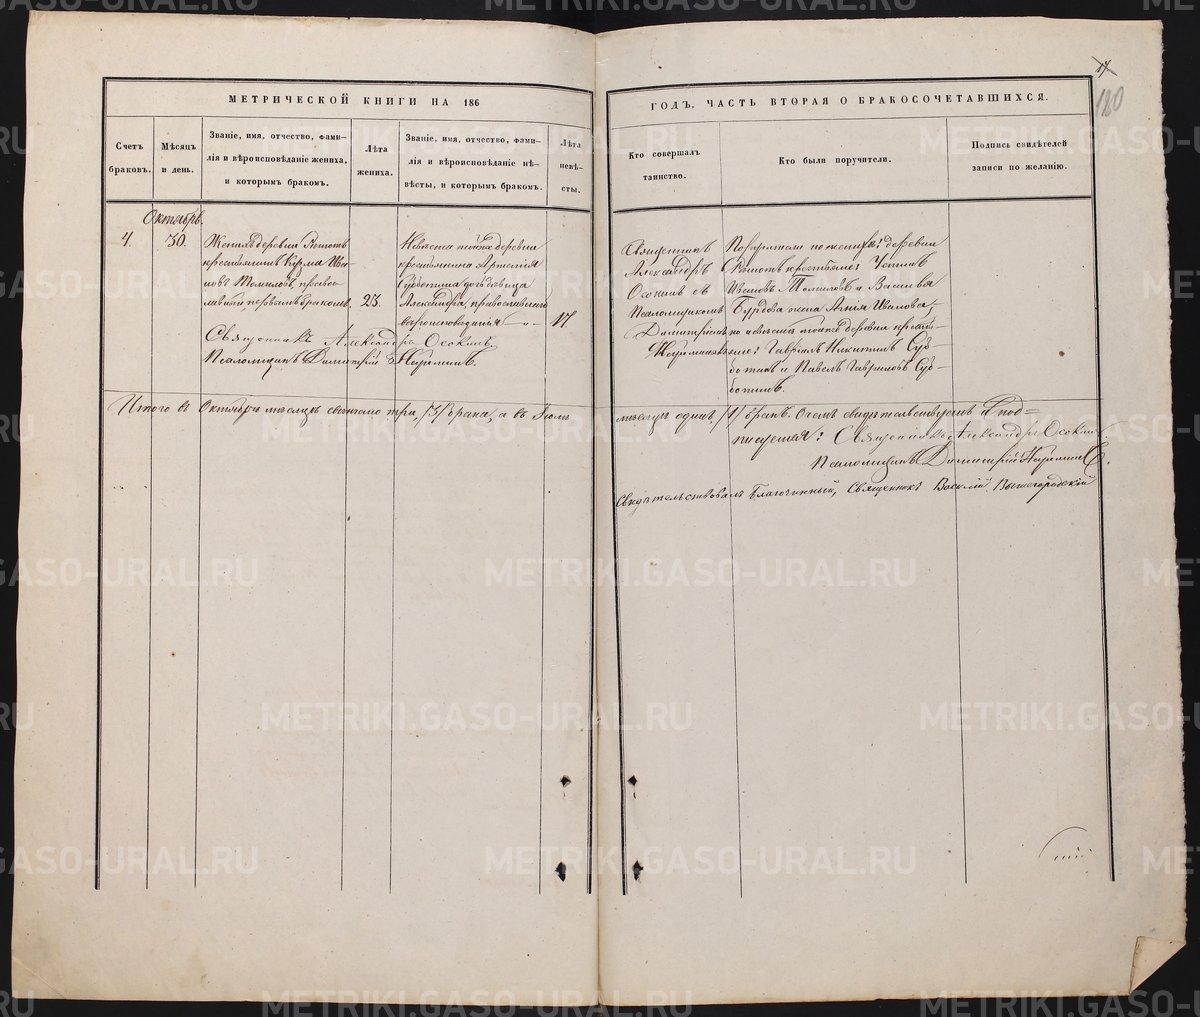 17
180
МЕТРИЧЕСКОЙ КНИГИ НА 186
ГОДЪ. ЧАСТЬ ВТОРАЯ О БРАКОСОЧЕТАВШИХСЯ.
Счетъ браковъ.
Мѣсяцъ и день.
Званіе, имя, отчество, фами-
лія и вѣроисповѣданіе жениха,
и которымъ бракомъ.
Лѣта жениха.
Званіе, имя, отчество, фами-
лія и вѣроисповѣданіе не-
вѣсты, и которымъ бракомъ.
Лѣта невѣ-
сты.
Кто совершалъ
таинство.
Кто были поручители.
Подпись свидѣтелей
записи по желанію.
Октябрь.
4.
30.
Женихъ деревни
крестьянинъ Ива-
новъ Томиловъ, правос-
лавный, первымъ бракомъ
23.
Невѣста тойже деревни
крестьянина
Субботина дочь девица
Александра, православнаго
вероисповеданія
17
Священникъ Александръ Осокинъ
Псаломщикъ Димитрій
Священникъ
Александръ
Осокинъ съ
Псаломщикомъ
Димитріемъ
Поручители по женихѣ: деревни
крестьяне: Устинъ
Ивановъ Томиловъ и Василья
жена Ивановa,
по невѣстѣ тойже деревни кресть-
яне: Гавріилъ Никитинъ Суб-
ботинъ и Павелъ Гавриловъ Суб-
ботинъ.
Итого въ Октябрѣ месяцѣ три, /3/ брака, а въ
месяцѣ одинъ, /1/ бракъ. Въ чемъ свидетельствуемъ и под-
писуемся: Священникъ Александръ Осокинъ.
Псаломщикъ Димитрій
Свидѣтельствовалъ Благочинный, Священникъ Василій Вышегородскій
METRIKI.GASO-URAL.RU